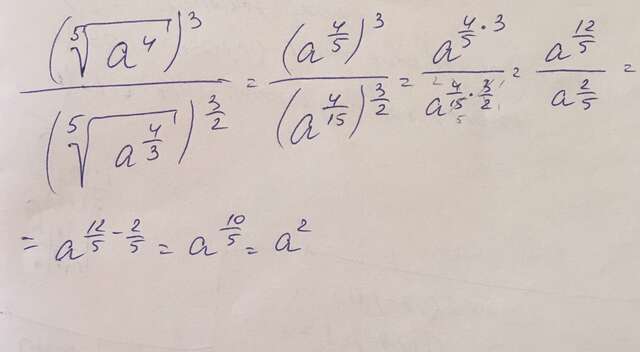 (⁵√a⁴)³ / (⁵√a^(4/3))^(3/2) = (a^(4/5))³ / (a^(4/15))^(3/2) = a^(4/5 · 3) / a^(4/15 · 3/2) = a^(12/5) / a^(2/5) =
= a^(12/5 - 2/5) = a^(10/5) = a²